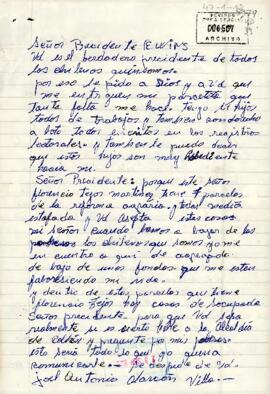 Señor Presidente E. Wins
Vd es el berdadero presidente de todos
los chilenos quisiemos
por eso le pido a Dios y a Vd que
me entreguen una parcelita que
tanta falta me hace tengo hijos
todos de trabajos y tambien con derecho
a boto todos iscritos en los registros
letorales y tambien le puedo decir
que estos hijos son muy
hacia mi.
Señor Presidente: porque este señor
florencio tejos martines tiene 4 parcelas
de la reforma agraria y todas media
estafada y Vd asepta estas cosas
mi señor cuando bamos a bajar de los
los chilenos que somos yo me
en cuentro a qui de
de bajo de unos fondos que me estan
faboresiendo mi vida
y dentro de estas parcelas que tiene
florencio tejos hay casas de socupadas
Señor presidente para que Vd sepa
realmente si es sierto hable a la Alcaldia
de y pregunte por mis
esto seria todo lo que yo queria
comunicarle. Se despide de Vd.
José Antonio Alarcón Villa
ARCHIVO